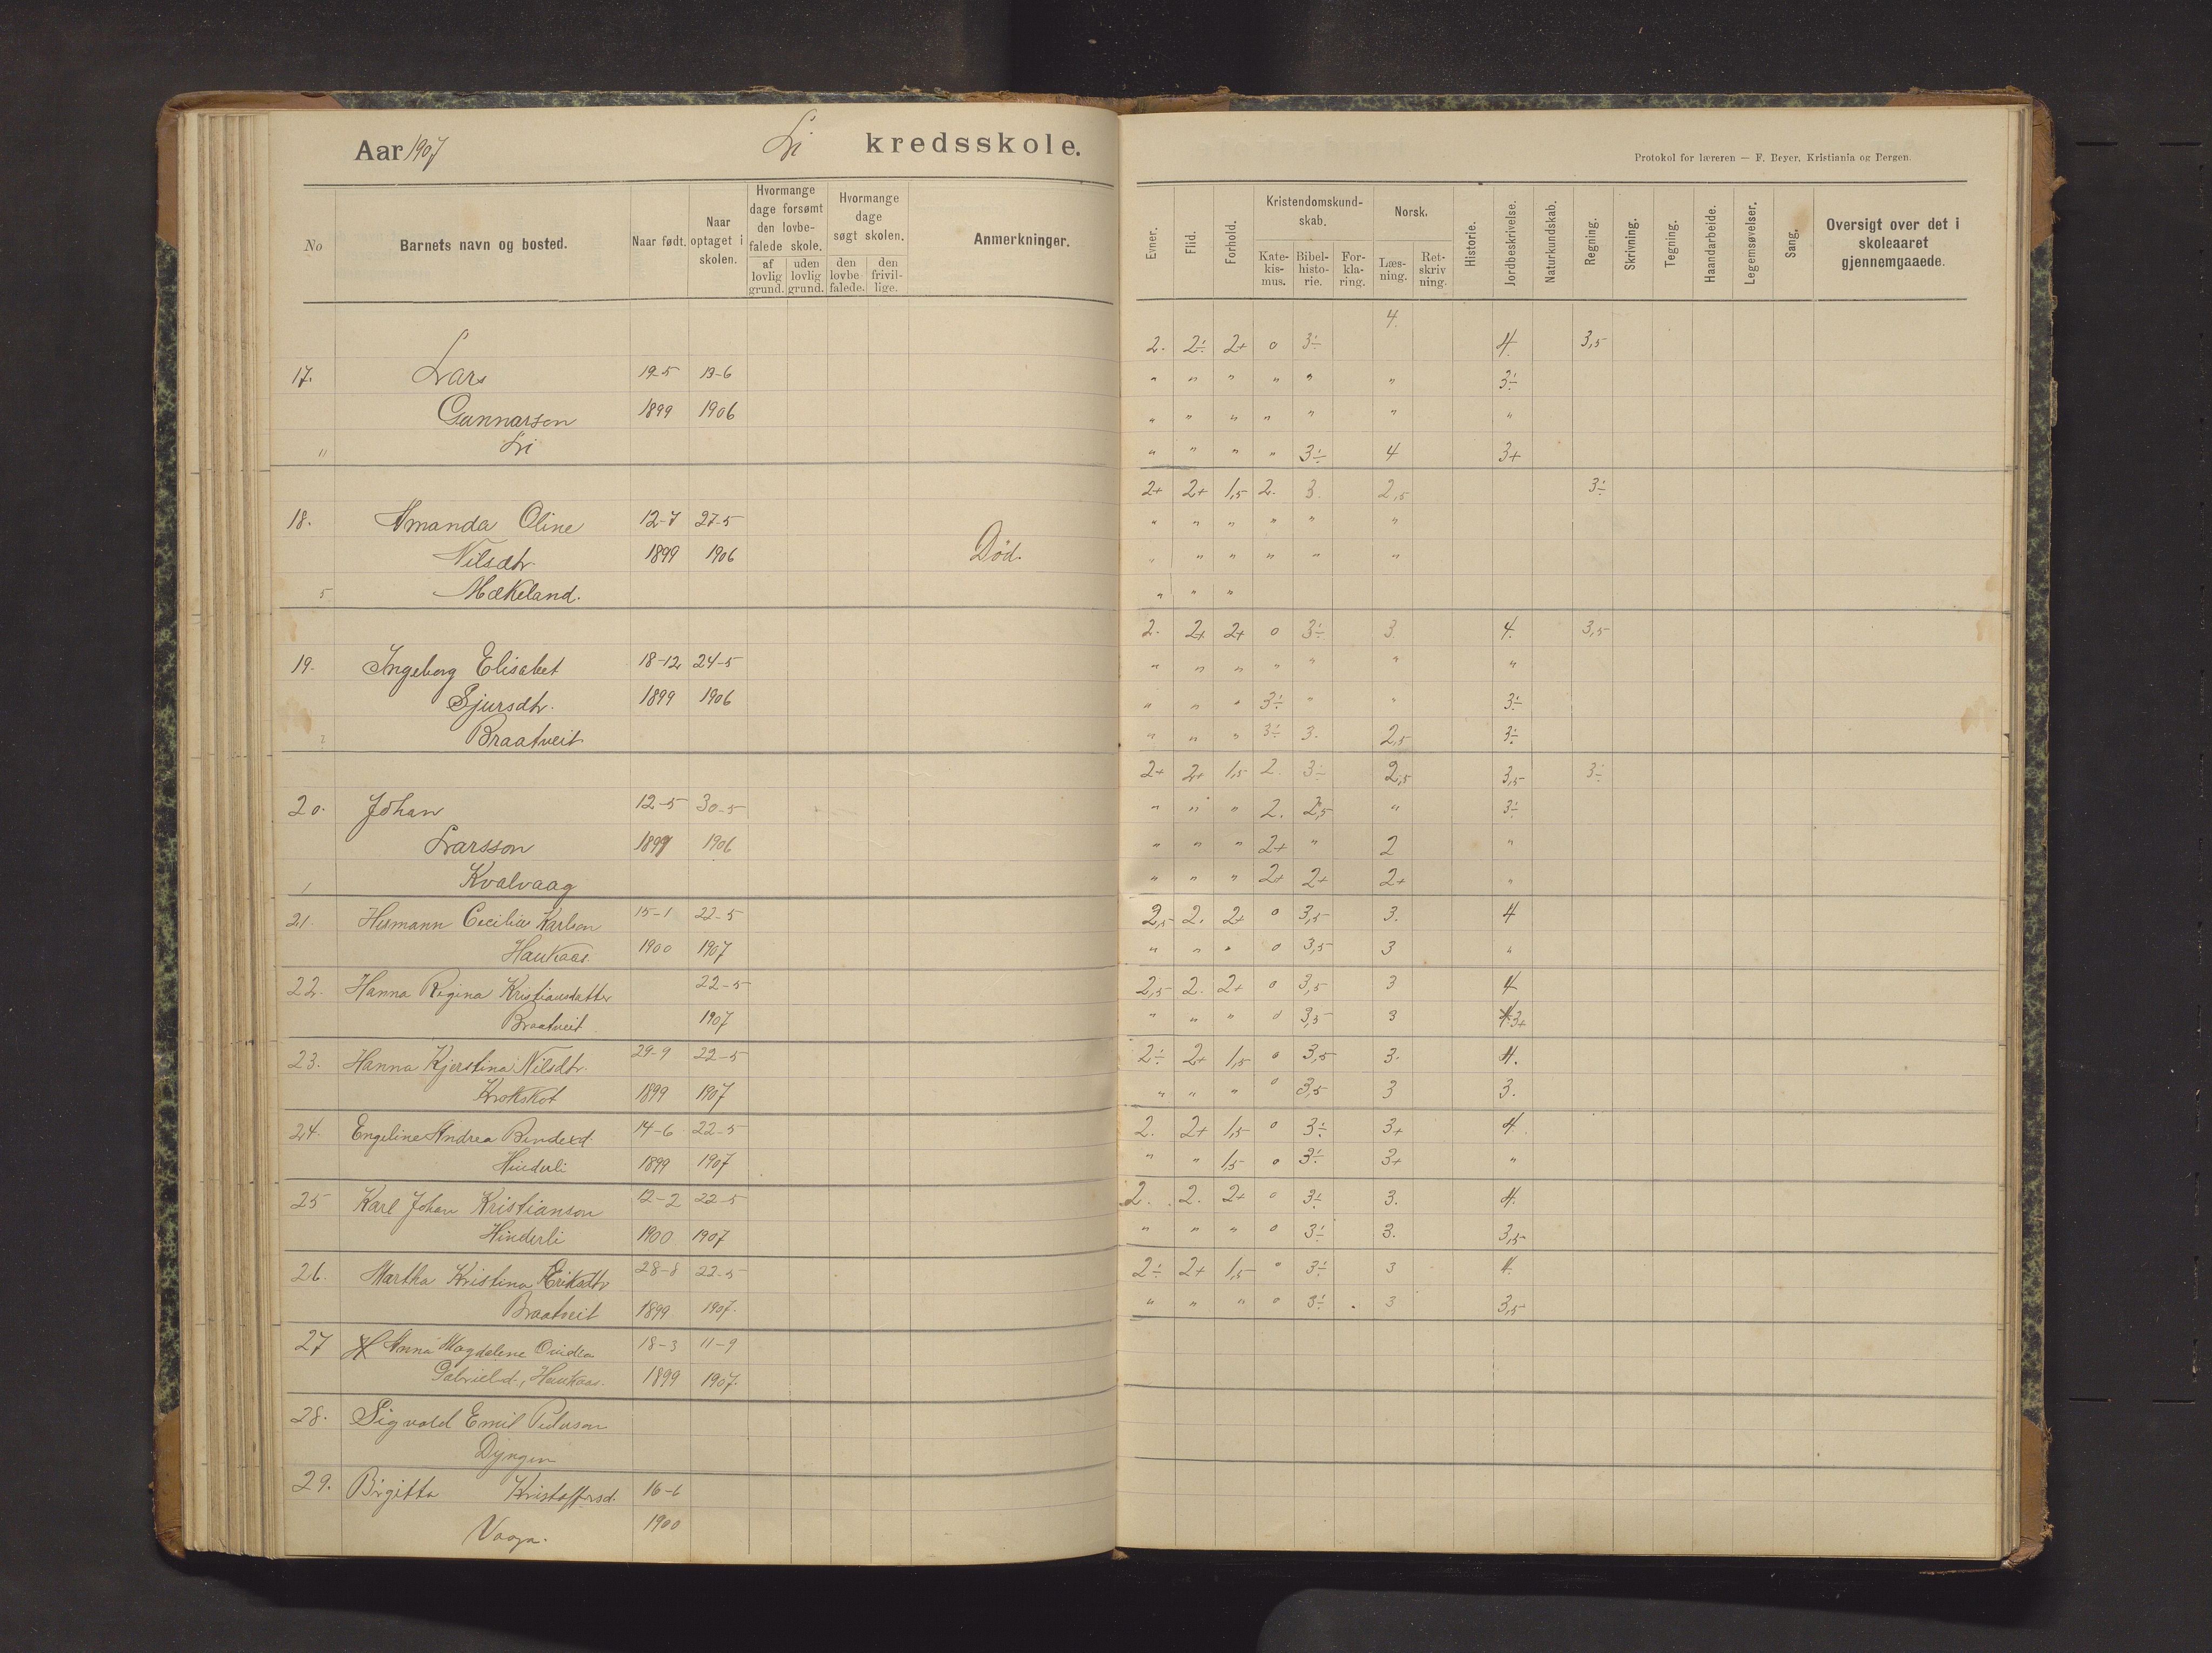 Aar 1907 Li kredsskole.
Protokol for læreren — F. Beyer, Kristiania og Bergen.
No Barnets navn og bosted. Naar født. Naar optaget i skolen. Hvormange dage forsømt den lovbefalede skole. af lovlig grund. uden lovlig grund. Hvormange dage søgt skolen. den lovbefalede. den frivillige. Anmerkninger.
Evner. Flid. Forhold. Kristendomskundskab. Katekismus. Bibelhistorie. Forklaring. Norsk. Læsning. Retskrivning. Historie. Jordbeskrivelse. Naturkundskab. Regning. Skrivning. Tegning. Haandarbeide. Legemsøvelser. Sang. Oversigt over det i skoleaaret gjennemgaaede.
4.
2. 2÷ 2+ 0 3÷ 4. 3,5
17. Lars 19-5 13-6 " " " " " " 3÷
Gunnarson 1899 1906 " " " " " " "
" Li " " " " 3÷ 4 3+
2+ 2+ 1,5 2. 3. 2,5 3÷
18. Amanda Oline 12-7 27-5 " " " " " "
Nilsdtr. 1899 1906 Død. " " " " " "
5 Mækeland. " " "
2. 2+ 2+ 0 3÷ 3. 4. 3,5
19. Ingeborg Elisabet 18-12 24-5 " " " " " " "
Sjursdtr. 1899 1906 " " " 3÷ " " 3÷
2 Braatveit " " " 3÷ 3. 2,5 3÷
2+ 2+ 1,5 2. 3÷ 2,5 3,5 3÷
20. Johan 12-5 30-5 " " " 2. 2,5 " 3÷
Larsson 1899 1906 " " " 2+ " 2 "
1 Kvalvaag " " " 2+ 2+ 2+ "
21. Hermann Cecilius Karlson 15-1 22-5 2,5 2. 2+ 0 3,5 3. 4
Haukaas. 1900 1907 " " " 0 3,5 3 "
22. Hanna Regina Kristiansdatter 22-5 2,5 2. 2+ 0 3,5 3 4
Braatveit 1907 " " " 0 3,5 3 4. 3+
23. Hanna Kjerstina Nilsdtr. 29-9 22-5 2÷ 2+ 1,5 0 3,5 3. 4.
Krokskot 1899 1907 " " " 0 3,5 3 3.
24. Engeline Andrea Bendixd. 14-6 22-5 2. 2+ 1,5 0 3÷ 3+ 4.
Hinderli 1899 1907 " " 1,5 0 3÷ 3+ "
25 Karl Johan Kristianson 12-2 22-5 2. 2. 2+ 0 3÷ 3. 4.
Hinderli 1900 1907 " " " 0 3÷ 3. 3,5
26. Martha Kristina Eriksdtr 28-8 22-5 2÷ 2+ 1,5 0 3÷ 3 4.
Braatveit 1899 1907. " " " 0 3÷ 3 3,5
27 Anna Magdalene Ovidia 18-3 11-9
Gabrield., Haukaas. 1899 1907.
28. Sigvald Emil Pederson
Dyngen
29. Birgitta Kristoffersd. 16-6
Vaaga. 1900